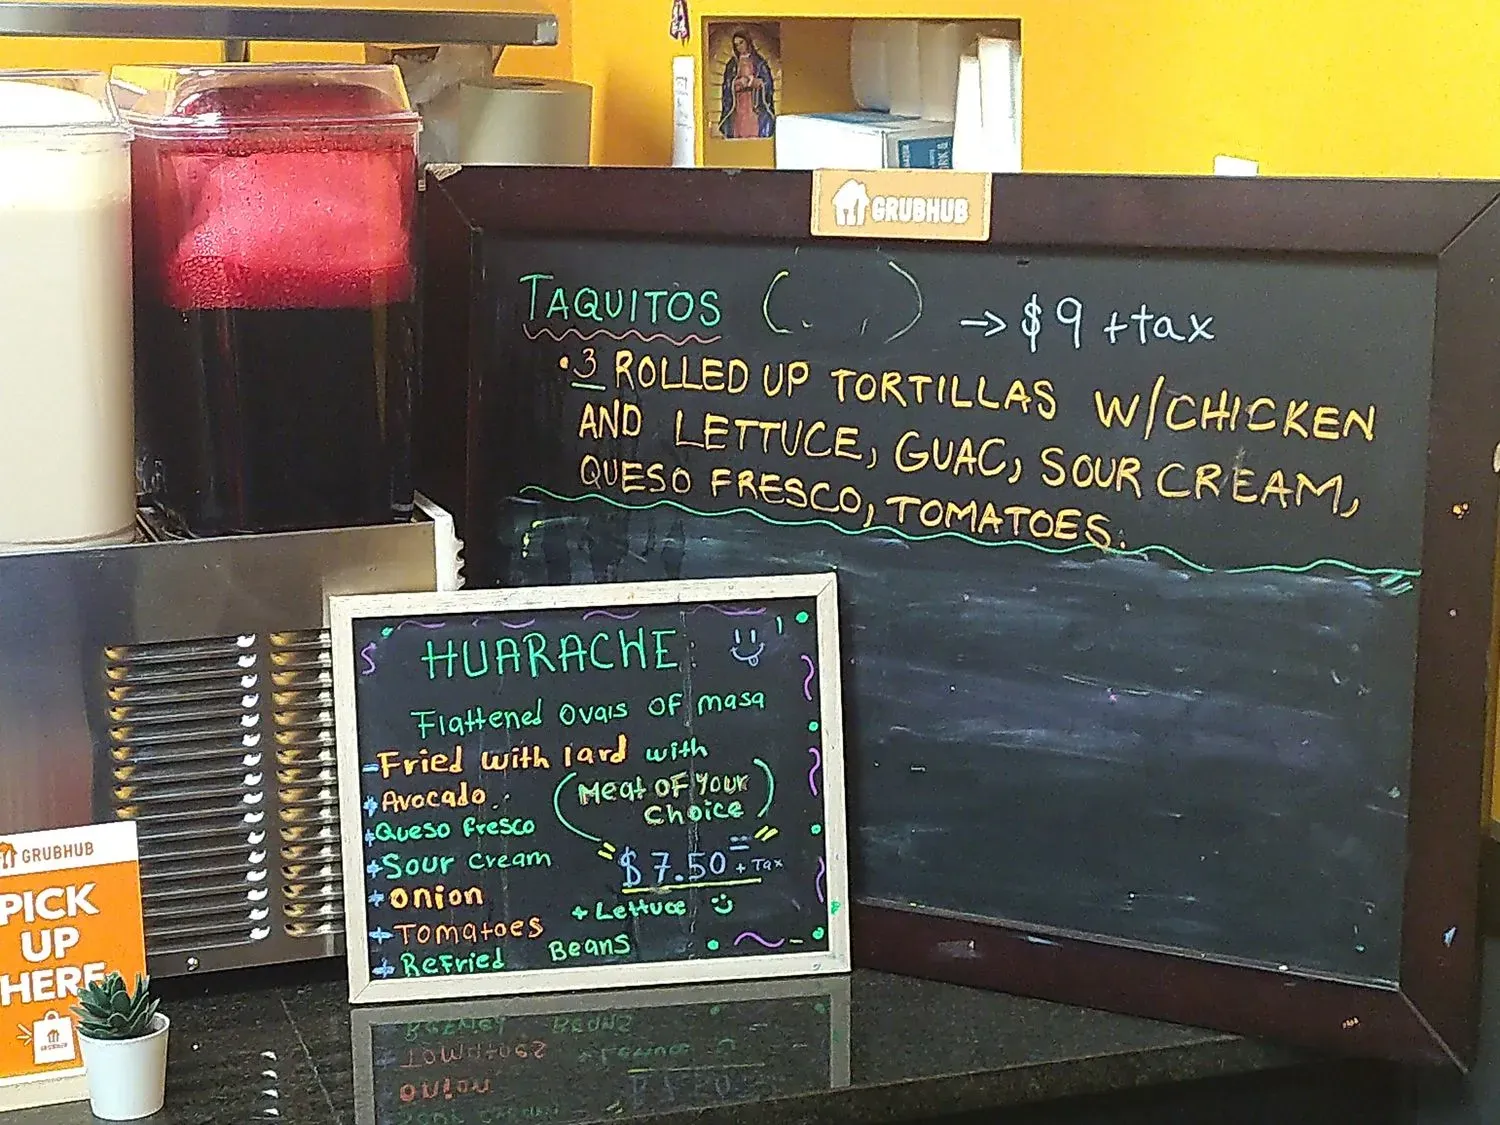 GRUBHUB
TAQUITOS ( ) → $9 +tax
• 3 ROLLED UP TORTILLAS W/CHICKEN
AND LETTUCE, GUAC, SOUR CREAM,
QUESO FRESCO, TOMATOES.
HUARACHE
Flattened ovals of masa
-Fried with lard with
+Avocado
(Meat OF Your
Choice)
+Queso fresco
+Sour cream
$7.50 + Tax
+Onion
+ Lettuce
+Tomatoes
+Refried Beans
GRUBHUB
PICK
UP
HERE